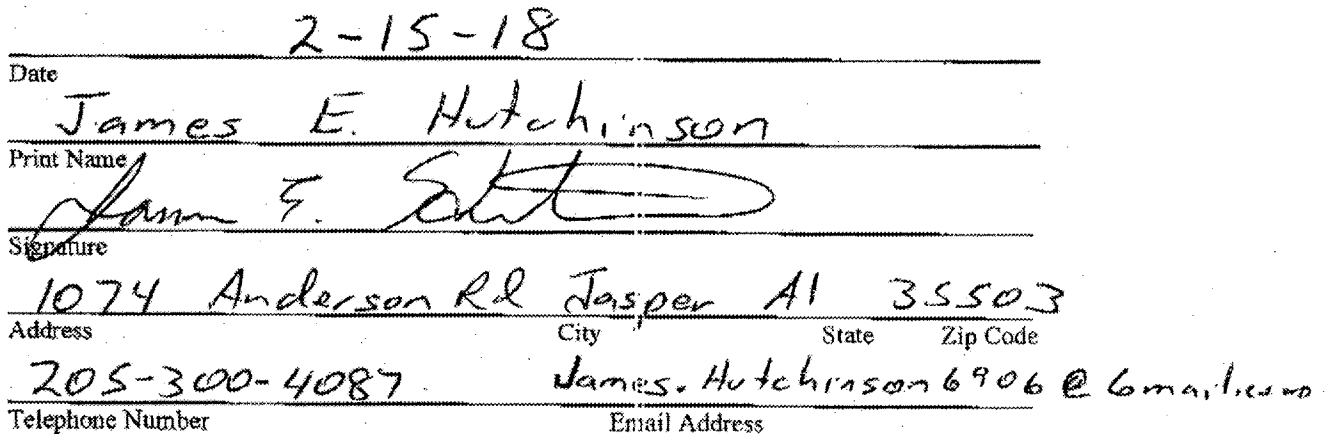 2-15-18
Date
James E. Hutchinson
Print Name
Signature
1074 Anderson Rd Jasper Al 35503
Address City State Zip Code
205-300-4087 James.Hutchinson6906@Gmail.com
Telephone Number Email Address